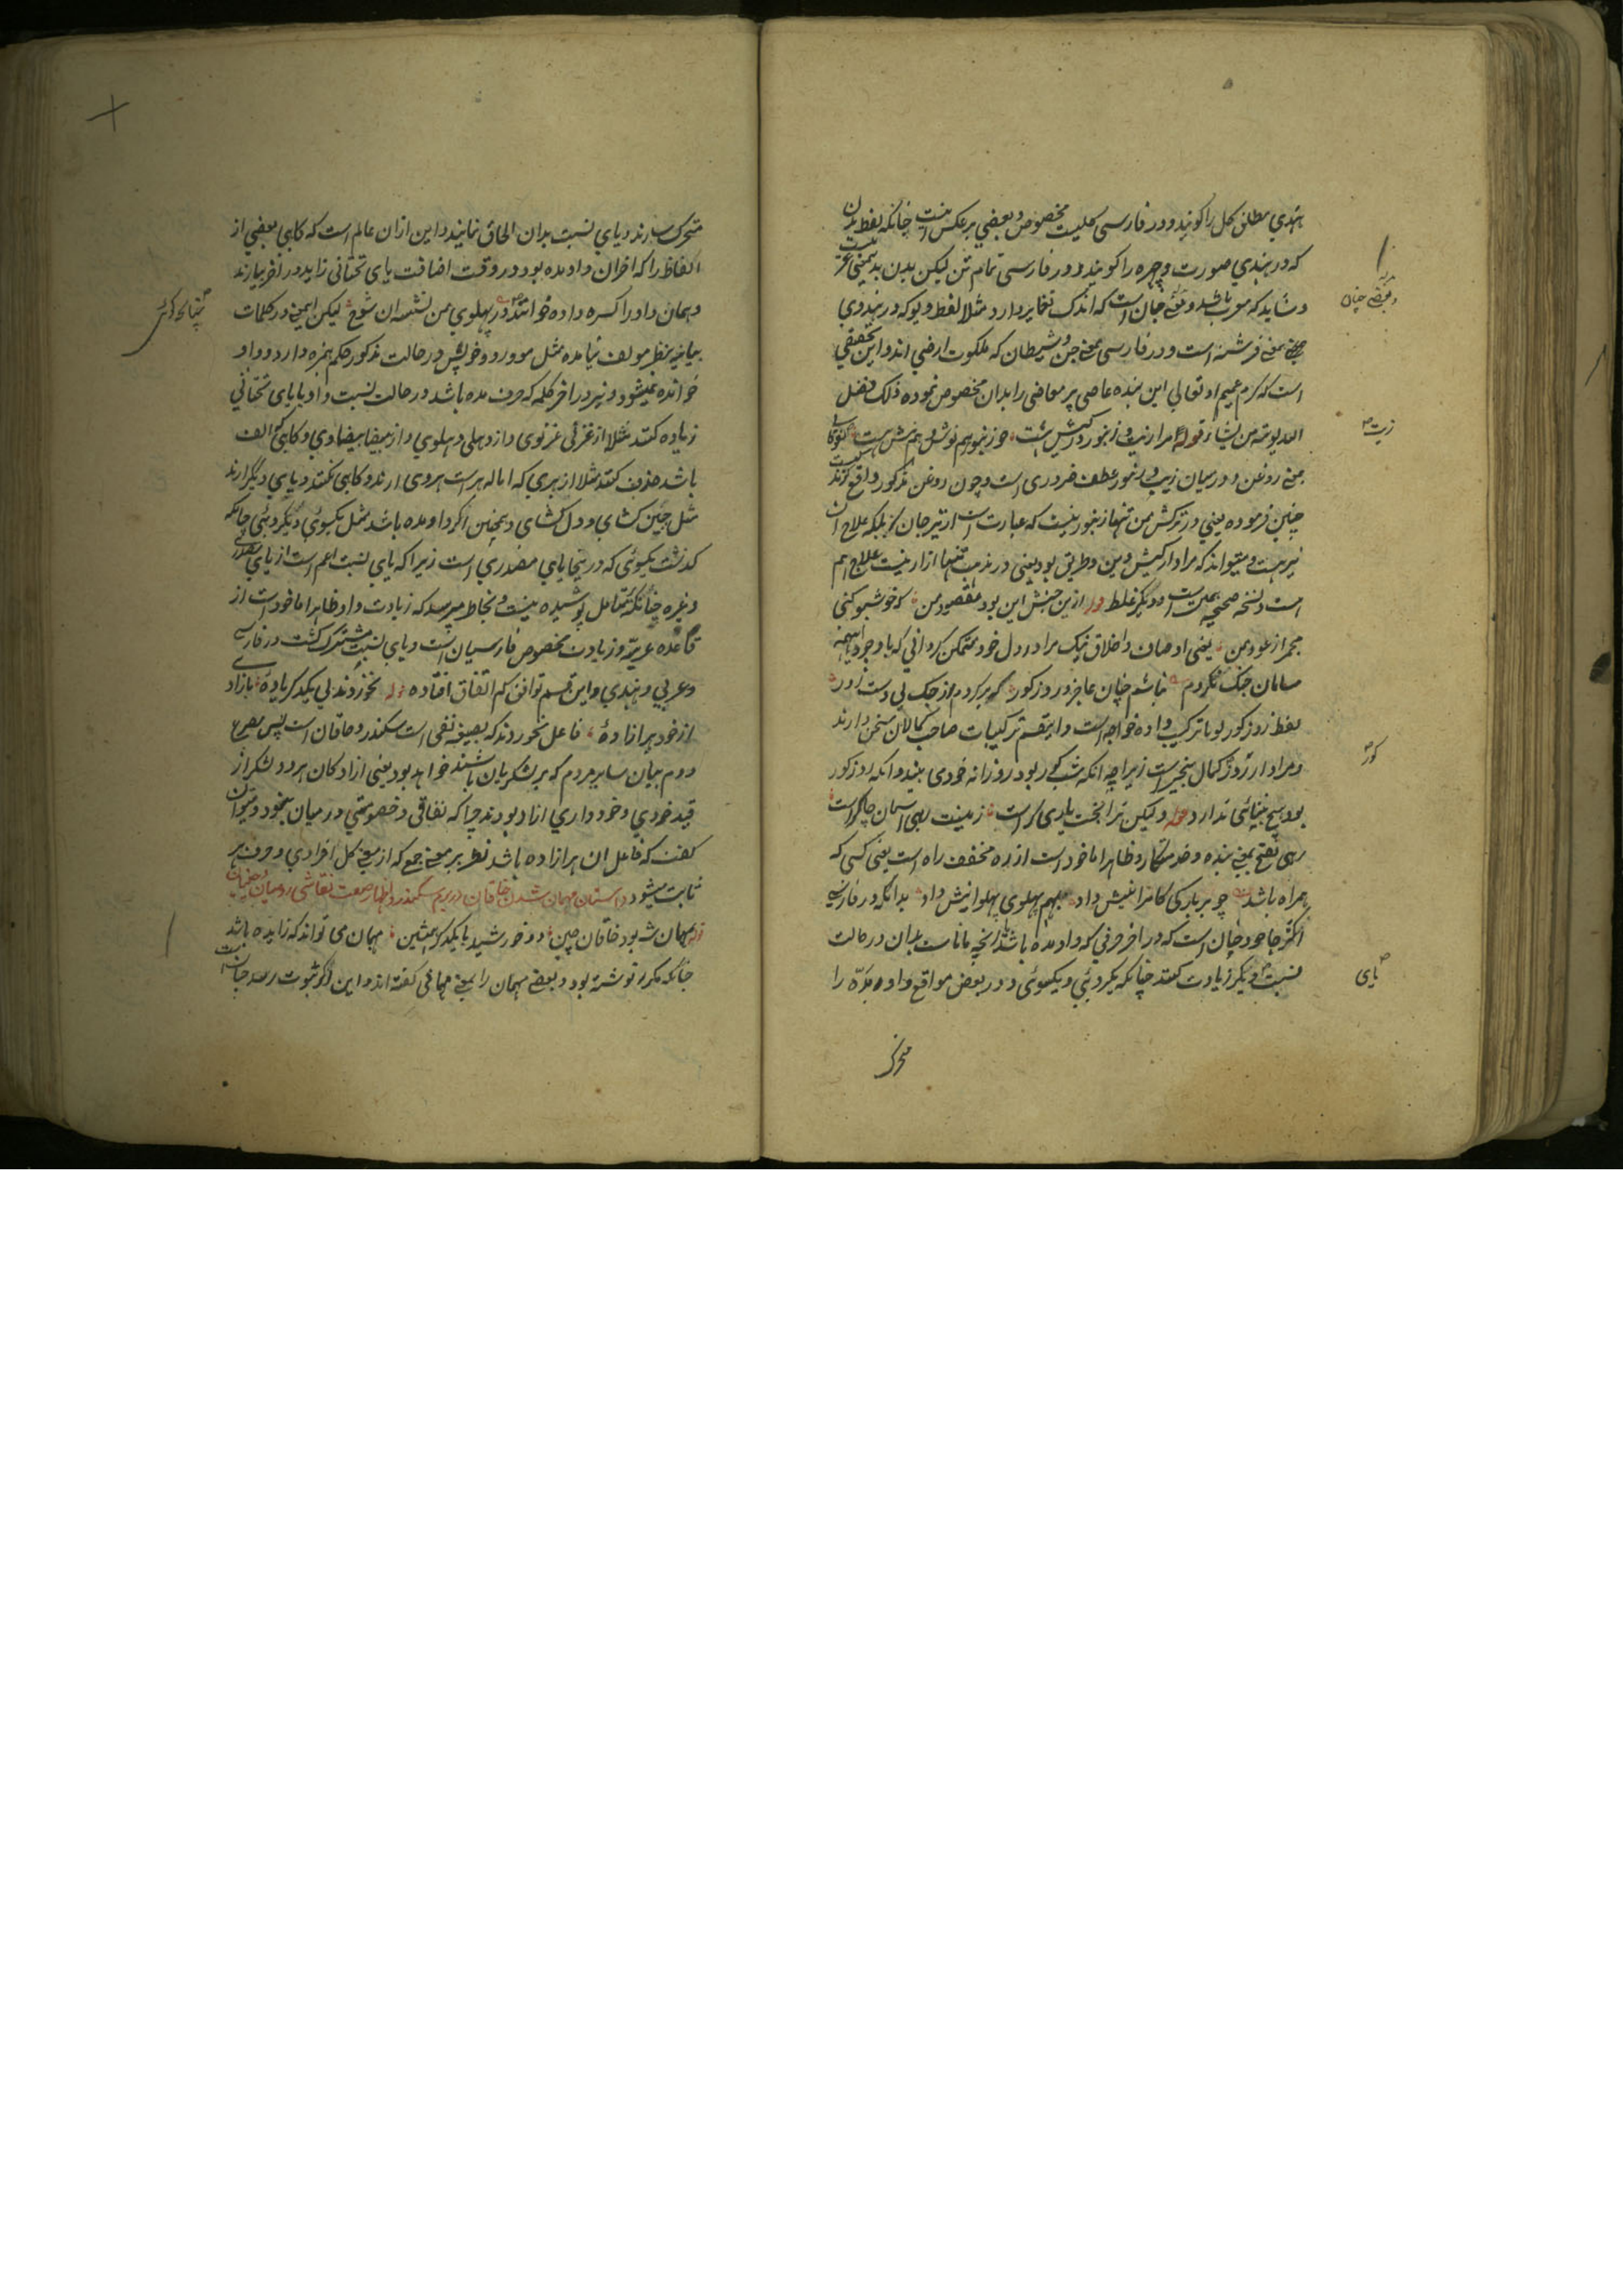 هندي مطلق کل را کویند و در فارسی کلیست مخصوص و بعضي برعکس اینست چنانکه لفظ بدن
که در هندي صورت و چهره را کویند و در فارسی تمام تن لیکن بدن بدینمعنی عربیست
و شاید که معرب باشد و بعضے چنان است که اندک تغایر دارد مثلا لفظ دیو که در هندوي
بمعنے فرشته است و در فارسی بمعنے جن و شیطان که ملکوت ارضی اند و این تحقیقي
است که کرم عمیم او تعالی این بنده عاصی پر معاصی را بدان مخصوص نموده ذلک فضل
الله یوتیه من یشاء قوله مرا زیت و زنبور در کیش هست چو زنبور هم نوش و هم نیش هست
بمعنے روغن و در میان زیت و زنبور عطف ضروری است و چون روغن مذکور دافع کزند
چنین فرموده یعني در ترکش من تنها زنبور نیست که عبارت است از تیر جان کزا بلکه علاج آن
نیز هست و میتواند که مراد از کیش دین و طریق بود یعنی در مذهب تنها آزار نیست علاج هم
است و نسخه صحیحه همین است و دیگر غلط قوله ازین جنبش این بود مقصود من که خوشبو کنی
مجمر از عود من یعنی اوصاف و اخلاق نیک مرا در دل خود متمکن کردانی که با وجود اینهمه
سامان جنک نکردم نباشم چنان عاجز و روز کور که برکردم از جنک بی دست زور
لفظ روز کور لو با ترکیب داده خواجه است و اینقسم ترکیبات صاحب کمالان سخن دارند
و مراد از روز کور کمال بیخبریست زیرا چه آنکه شب کور بود روزانه خودی بیند و آنکه روز کور
بود هیچ بینائی ندارد قوله ولیکن ترا بخت یاری کر است زمینت رهی آسمان چاکر است
رهی بفتح بمعنے بنده و خدمتکار و ظاهرا ماخوذ است از ره مخفف راه است یعنی کسی که
همراه باشد چو بر بارکی کامرانیش داد بهم پهلوی پهلوانیش داد بدانکه در فارسی
اکثر جاها و چنان است که در آخر حرفی که واو مده باشد آنچه مانا ست بدان در حالت
نسبت یای دیگر زیادت کنند چنانکه یکروئي و یکسوئی و در بعض مواقع واو مده را
متحرک
و بعضے چنان
زیت
کور
یای
متحرک سازند و یاي نسبت بدان الحاق نمایند و این از آن عالم است که کاهی بعضي از
الفاظ را که آخر آن واو مده بود در وقت اضافت یای تحتانی زاید در آخر بیارند
و همان واو را کسره داده خوانند در پهلوي من نشسته آن شوخ لیکن اینمعنے در کلمات
بیائیه بنظر مولف نیامده مثل مو و رو و خویش در حالت مذکور حکم همزه دارد و واو
خوانده نمیشود و نیز در آخر کلمه که حرف مده باشد در حالت نسبت واو با یای تحتاني
زیاده کنند مثلا از غزنی غزنوی و از دهلی دهلوي و از بیضا بیضاوي و کاهی که الف
باشد حذف کنند مثلا از هری که اماله هراست هروی آرند و کاهی نکنند و یای دیگر آرند
مثل جبین کشاي و دل کشای و همچنین اکر واو مده باشد مثل یکسوئي و یکروئي چنانکه
کذشت یکسوئی که در ینجا یای مصدري است زیرا که یای نسبت اعم است از یای مصدري
و غیره چنانکه بتامل پوشیده نیست و بخاطر میرسد که زیادت واو ظاهرا ماخوذ است از
قاعده عربیه و زیادت مخصوص فارسیان است و یای نسبت مشترک کشت در فارسی
و عربی و هندي و این قسم توافق کم اتفاق افتاده قوله نخوردند بی یکدکر باده بآزاد
از خود پر آزادۀ فاعل نخوردند که بصیغه نفی است سکندر و خاقان است پس مصرع
دوم بیان سایر مردم که پر لشکریان باشند خواهد بود یعنی آزادکان هر دو لشکر از
قید خودي و خود داري آزاد بودند چرا که نفاقی و خصومتي در میان نبود و میتوان
کفت که فاعل آن هر آزاده باشد نظر بر معنے جمع که از معنے کل افرادي و حرف هر
ثابت میشود داستان مهمان شدن خاقان در بزم سکندر و اظهار صنعت نقاشی رومیان و چینیان
قوله مهمان شه بود خاقان چین دو خورشید با یکدکر همنشین مهمان می تواند که زایده باشد
چنانکه مکرر نوشته بود و بعضے مهمان را بمعنے مهمانی کفته اند و این اکر بثبوت رسد
چنانکه کوئي